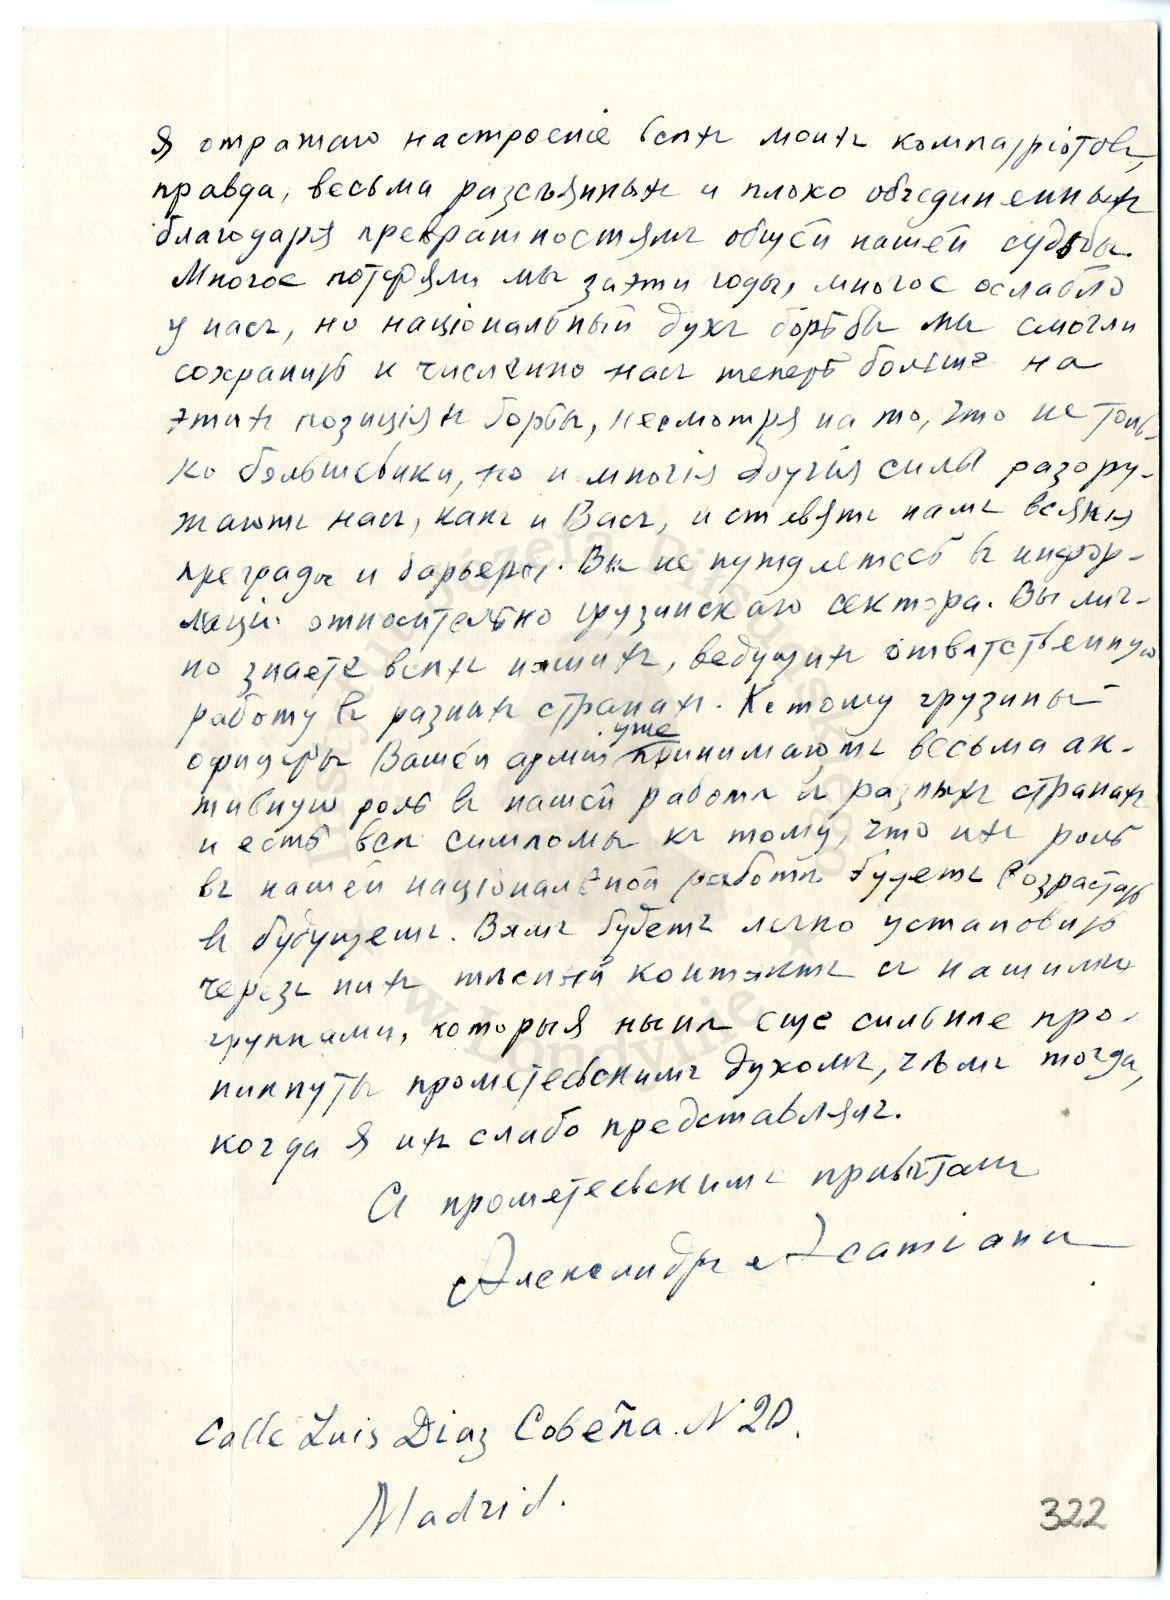 Я отражаю настроенiе всѣхъ моихъ компатрiотовъ,
правда, весьма разсѣянныхъ и плохо объединенныхъ
благодаря превратностямъ общей нашей судьбы.
Многое потеряли мы за эти годы, многое ослабло
у насъ, но нацiональный духъ борьбы мы смогли
сохранить и численно насъ теперь больше на
этихъ позицiяхъ борбы, несмотря на то, что не толь-
ко большевики, но и многiя другiя силы разору-
жаютъ насъ, какъ и Васъ, и ставятъ намъ всякiя
преграды и барьеры. Вы не нуждаетесь въ инфор-
мацiи относительно грузинскаго сектора. Вы лич-
но знаете всѣхъ нашихъ, ведущихъ отвѣтственную
работу въ разныхъ странахъ. Къ тому грузины
офицеры Вашей армiи уже принимаютъ весьма ак-
тивную роль въ нашей работѣ въ разныхъ странахъ
и есть всѣ симпомы къ тому, что ихъ роль
въ нашей нацiональной работѣ будетъ возрастать
въ будущемъ. Вамъ будетъ легко установить
черезъ нихъ тѣсный контактъ съ нашими
группами, которыя нынѣ еще сильнѣе про-
никнуты прометеевскимъ духомъ, чѣмъ тогда,
когда я ихъ слабо представлялъ.
Съ прометеевскимъ привѣтомъ
Александръ Асатiани
Calle Luis Diaz Cobeña N 20.
Madrid.
322